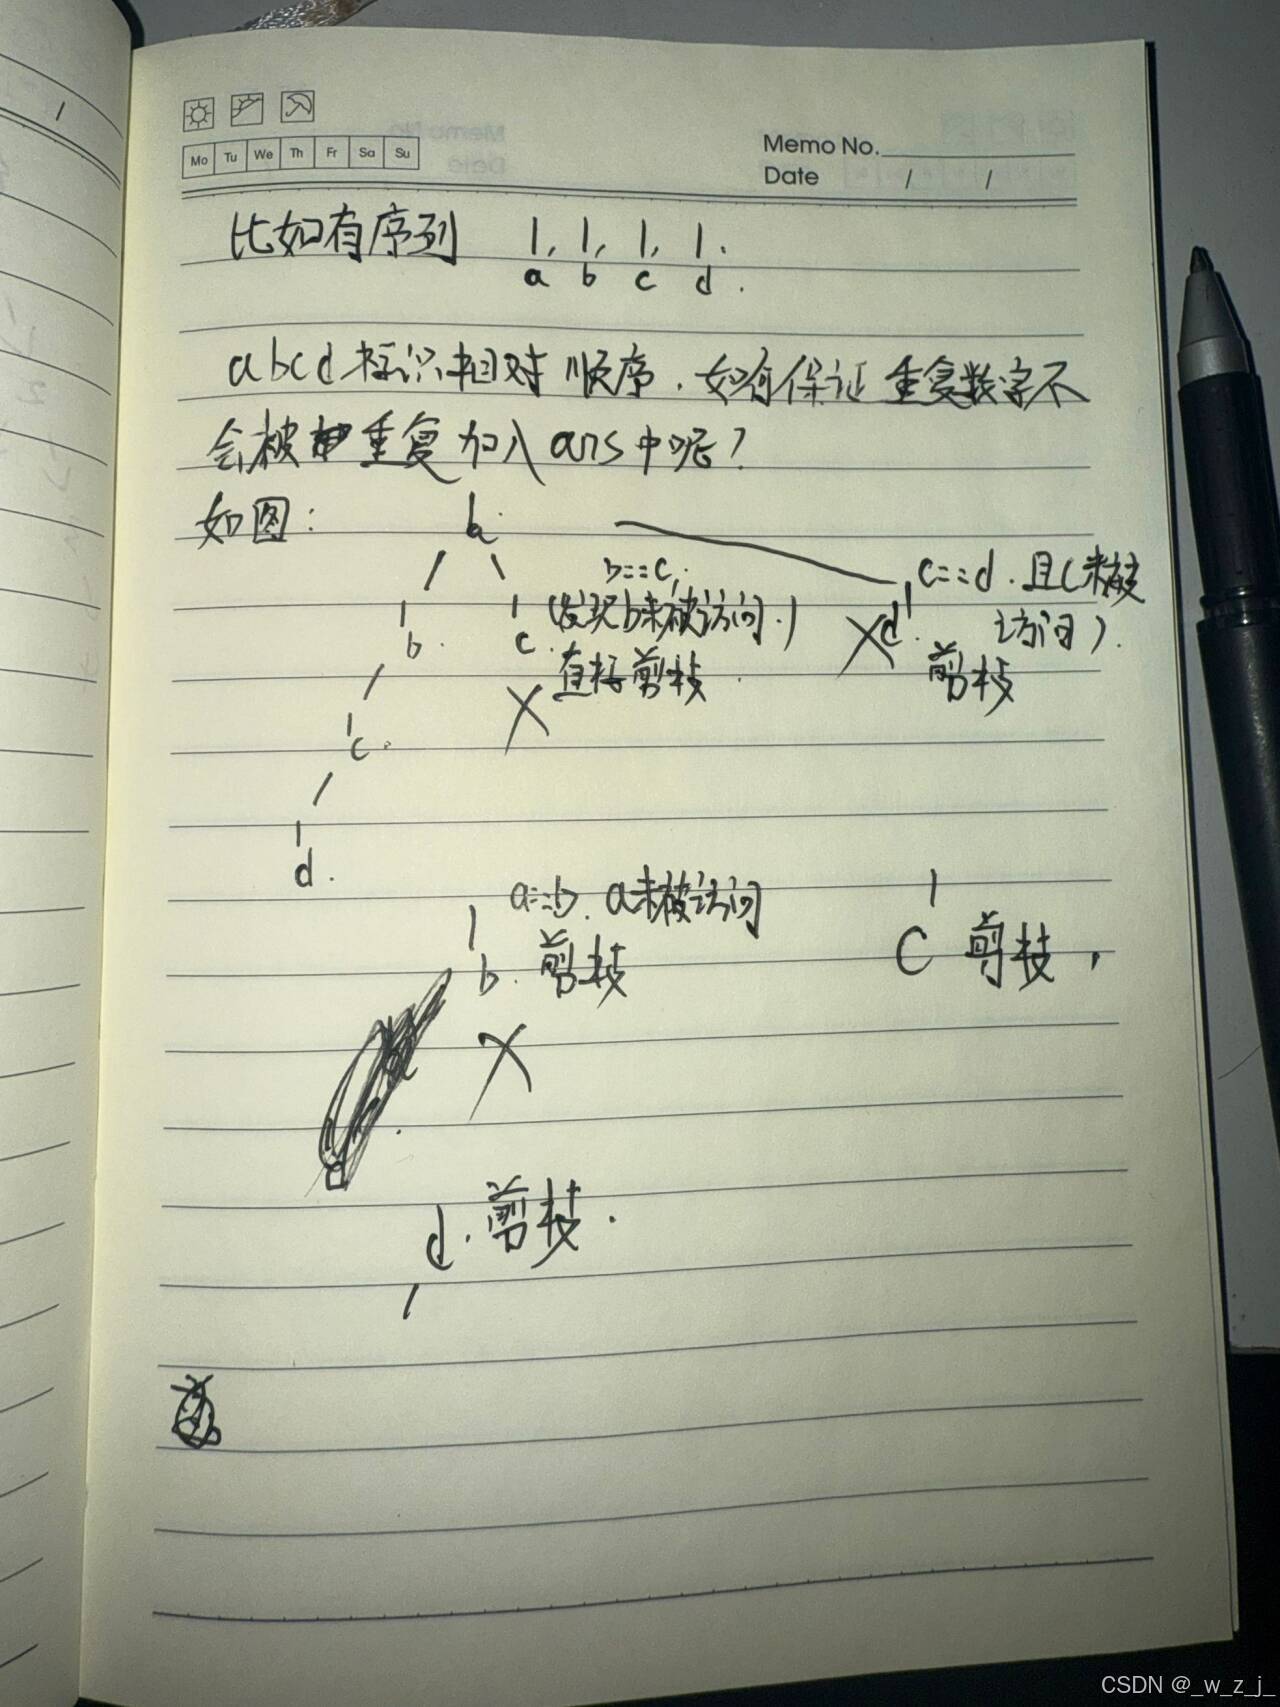 Mo Tu We Th Fr Sa Su
Memo No.
Date / /
比如有序列 1, 1, 1, 1.
a b c d.
abcd标识相对顺序.如何保证重复数字不
会被重复加入ans中呢?
如图:
a.
b==c,
(发现b未被访问.)
直接剪枝.
c==d.且c未被
访问).
剪枝
b.
c.
d.
c.
d.
a==b.a未被访问
b.剪枝
C 剪枝,
d.剪枝.
CSDN @_w_z_j_